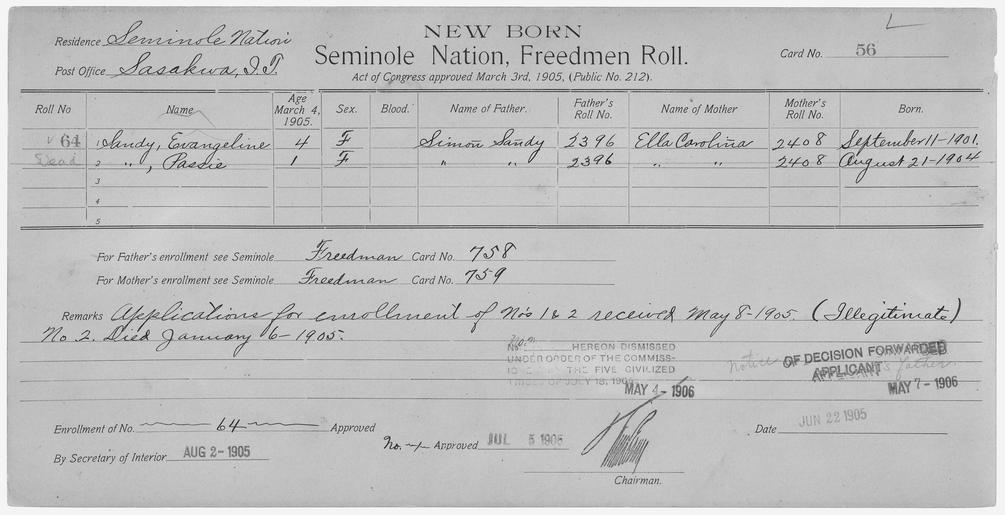 NEW BORN
Residence Seminole Nation
Seminole Nation, Freedmen Roll.
Card No. 56
Post Office Sasakwa, I.T.
Act of Congress approved March 3rd, 1905, (Public No. 212).
Roll No Name Age March 4, 1905. Sex. Blood. Name of Father. Father's Roll No. Name of Mother Mother's Roll No. Born.
64 1 Sandy, Evangeline 4 F Simon Sandy 2396 Ella Carolina 2408 September 11-1901.
Dead 2 " , Passie 1 F " " 2396 " " 2408 August 21-1904
3
4
5
For Father's enrollment see Seminole Freedman Card No. 758
For Mother's enrollment see Seminole Freedman Card No. 759
Remarks Applications for enrollment of Nos 1 & 2 received May 8-1905. (Illegitimate)
No 2. Died January 6-1905.
No. 2 HEREON DISMISSED
UNDER ORDER OF THE COMMISS-
THE FIVE CIVILIZED
OF JULY 18, 190
MAY 4-1906
notice OF DECISION FORWARDED
APPLICANT'S father
MAY 7-1906
Enrollment of No. 64 Approved
By Secretary of Interior AUG 2-1905
No. 1 Approved JUL 5 1905
Chairman.
Date JUN 22 1905